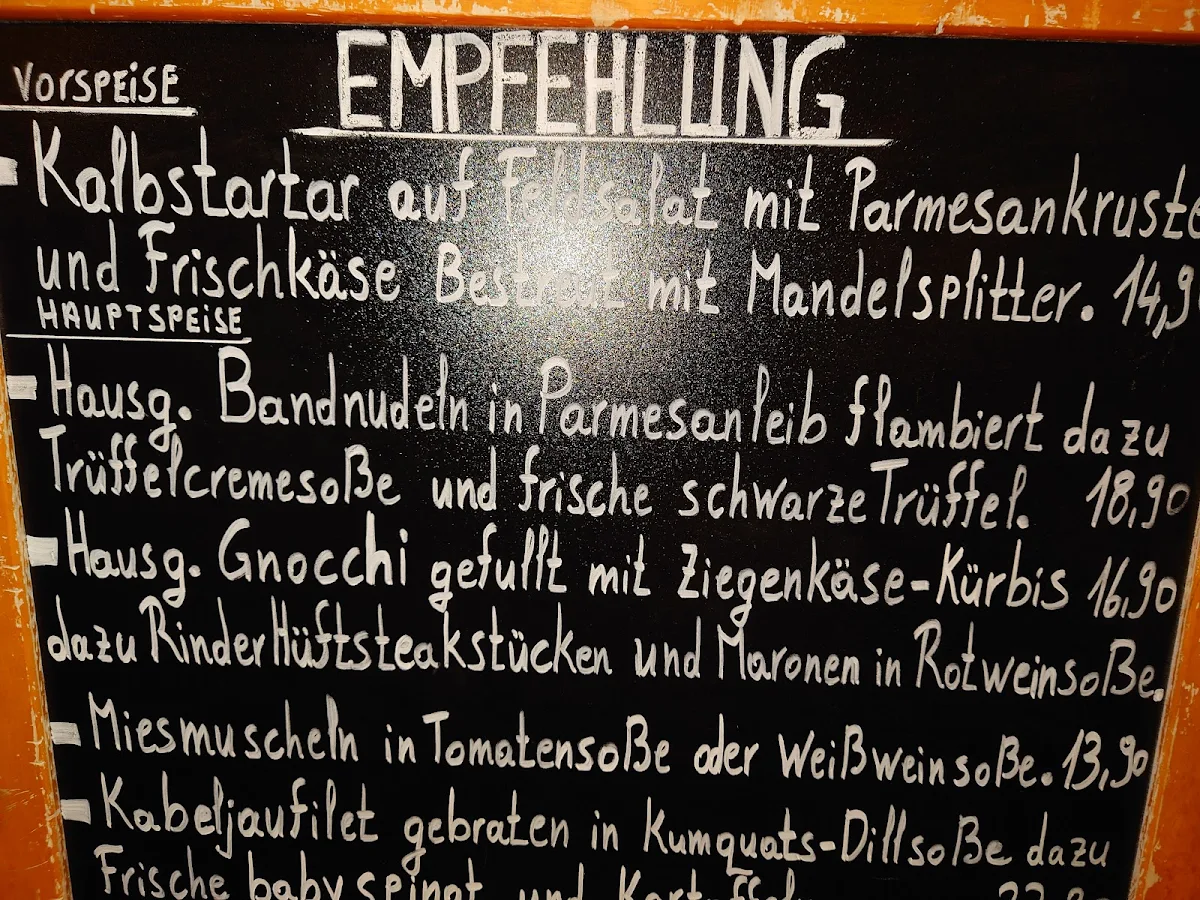 EMPFEHLUNG
VORSPEISE
Kalbstartar auf Feldsalat mit Parmesankruste
und Frischkäse Bestreut mit Mandelsplitter. 14,9
HAUPTSPEISE
Hausg. Bandnudeln in Parmesanleib flambiert dazu
Trüffelcremesoße und frische schwarze Trüffel. 18,90
Hausg. Gnocchi gefullt mit Ziegenkäse-Kürbis 16,90
dazu Rinder Hüftsteakstücken und Maronen in Rotweinsoße.
Miesmuscheln in Tomatensoße oder Weißweinsoße. 13,90
Kabeljaufilet gebraten in Kumquats-Dillsoße dazu
Frische babyspinat und Kartoffeln